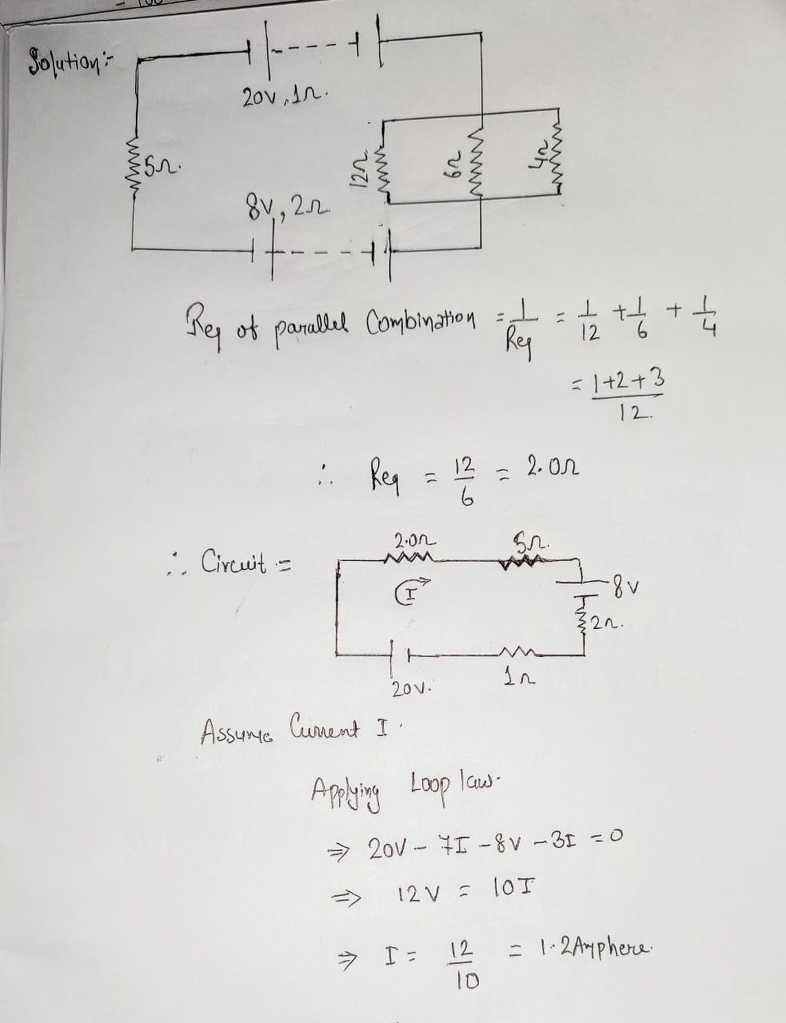 Solution:-
20V, 1Ω.
5Ω.
12Ω
6Ω
4Ω
8V, 2Ω
Req of parallel Combination = 1/Req = 1/12 + 1/6 + 1/4
= 1+2+3/12.
∴ Req = 12/6 = 2.0Ω
∴ Circuit =
2.0Ω
5Ω.
I
8V
2Ω.
20V.
1Ω
Assume Current I.
Applying Loop law.
⇒ 20V - 7I - 8V - 3I = 0
⇒ 12V = 10I
⇒ I = 12/10 = 1.2Amphere.